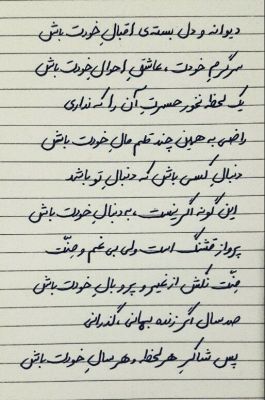 دیوانه و دل بسته‌ی اقبالِ خودت باش
سرگرمِ خودت، عاشقِ احوالِ خودت باش
یک لحظه نخور حسرتِ آن را که نداری
راضی به همین چند قلم مالِ خودت باش
دنبالِ کسی باش که دنبالِ تو باشد
این گونه اگر نیست، به دنبالِ خودت باش
پرواز قشنگ است ولی بی غم و منّت
منّت نکش از غیر و پر و بالِ خودت باش
صد سال اگر زنده بمانی، گذرانی
پس شاکرِ هر لحظه و هر سالِ خودت باش